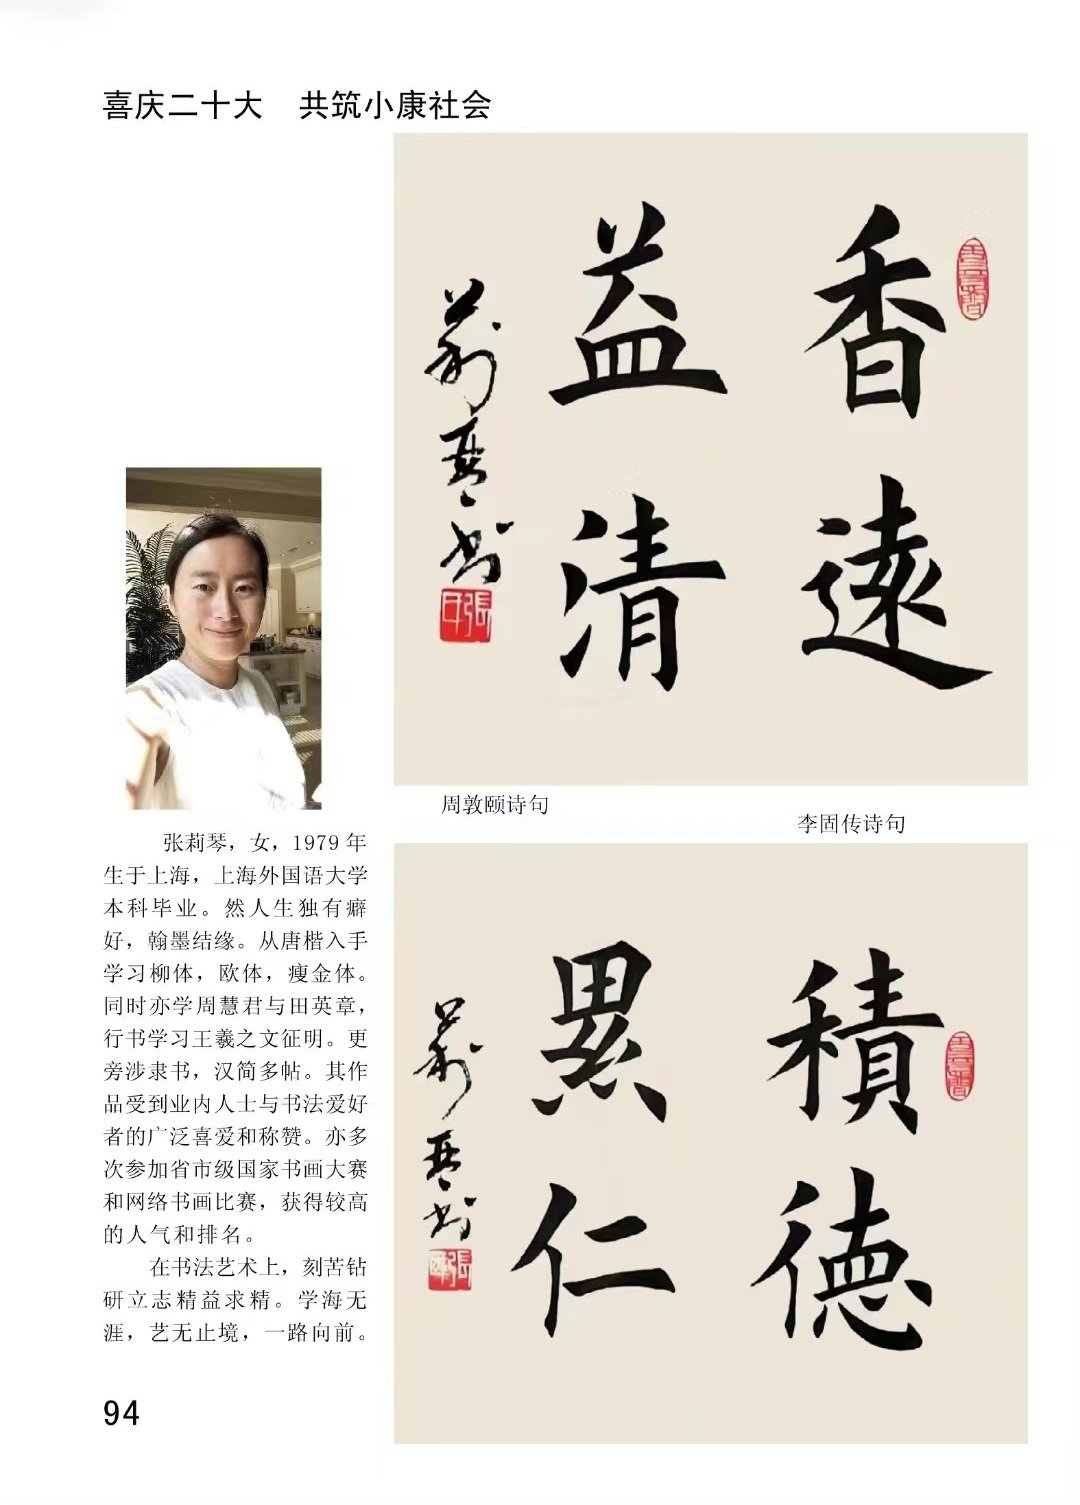 喜庆二十大　共筑小康社会
香遠
益清
莉琴书
周敦颐诗句
李固传诗句
積德
累仁
莉琴书
张莉琴，女，1979 年
生于上海，上海外国语大学
本科毕业。然人生独有癖
好，翰墨结缘。从唐楷入手
学习柳体，欧体，瘦金体。
同时亦学周慧君与田英章，
行书学习王羲之文征明。更
旁涉隶书，汉简多帖。其作
品受到业内人士与书法爱好
者的广泛喜爱和称赞。亦多
次参加省市级国家书画大赛
和网络书画比赛，获得较高
的人气和排名。
在书法艺术上，刻苦钻
研立志精益求精。学海无
涯，艺无止境，一路向前。
94